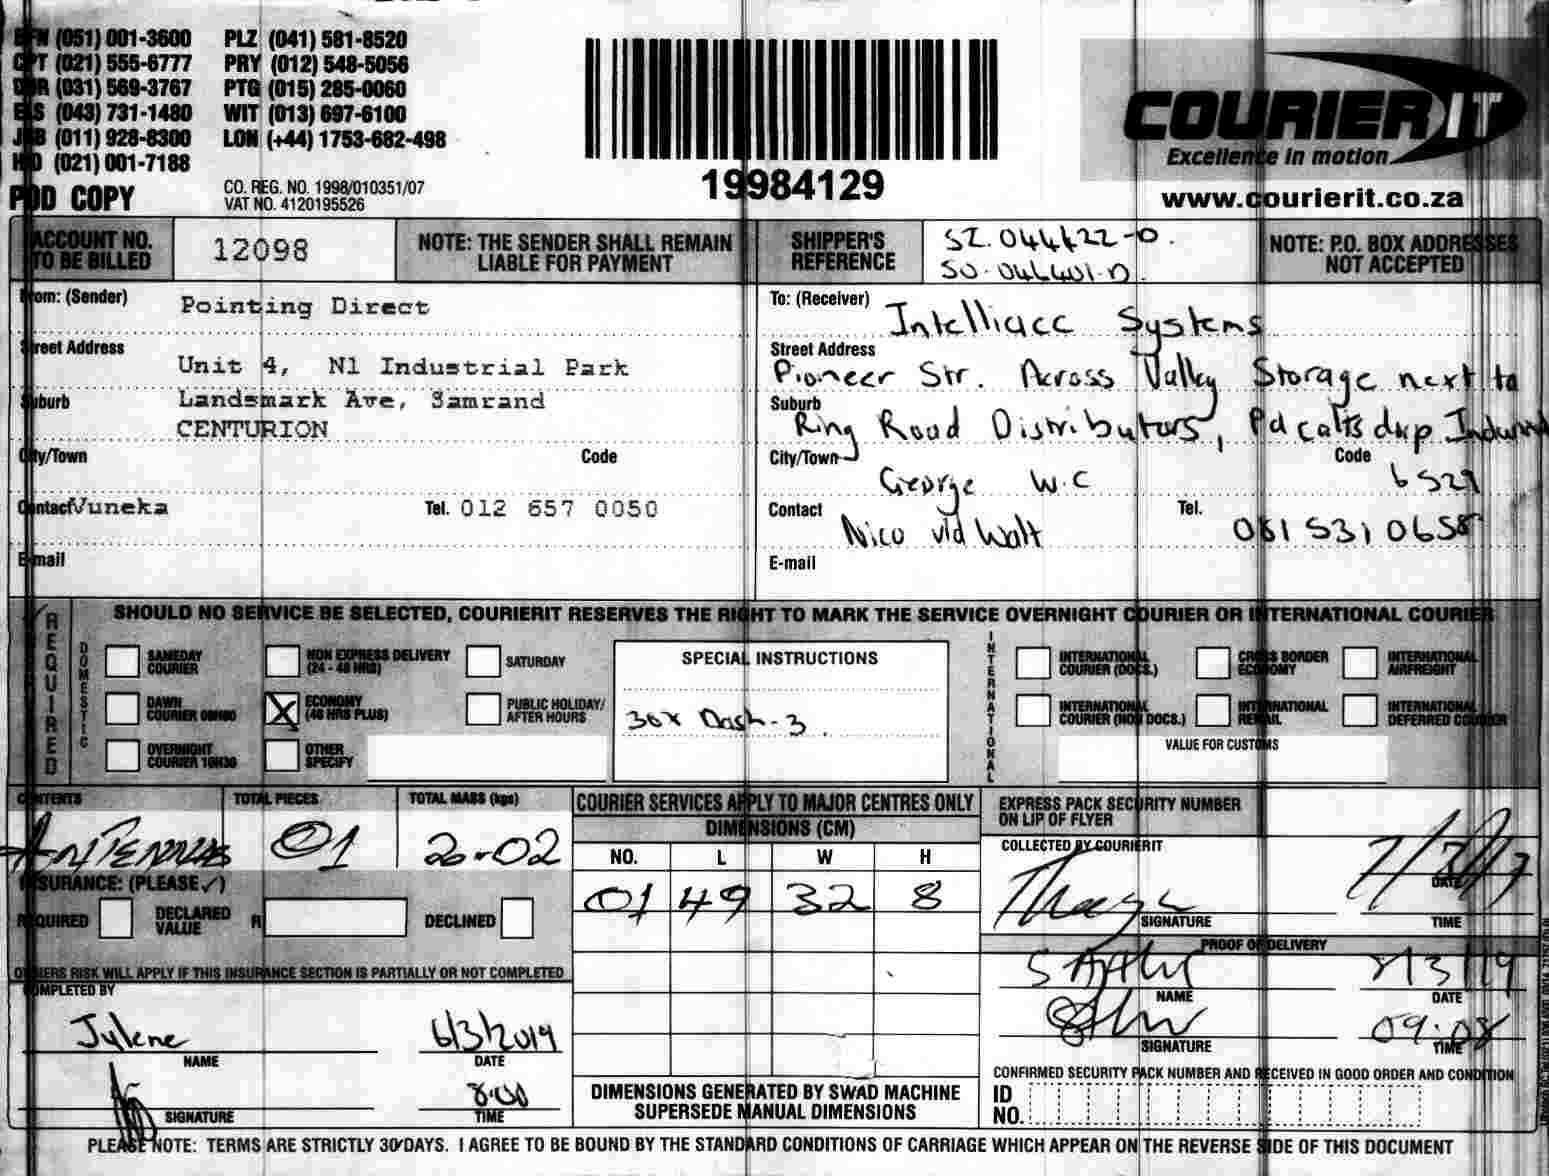 BFN (051) 001-3600 PLZ (041) 581-8520
CPT (021) 555-6777 PRY (012) 548-5056
DUR (031) 569-3767 PTG (015) 285-0060
ELS (043) 731-1480 WIT (013) 697-6100
JNB (011) 928-8300 LON (+44) 1753-682-498
H/O (021) 001-7188
POD COPY
CO. REG. NO. 1998/010351/07
VAT NO. 4120195526
19984129
COURIER IT
Excellence in motion
www.courierit.co.za
ACCOUNT NO. TO BE BILLED
12098
NOTE: THE SENDER SHALL REMAIN LIABLE FOR PAYMENT
SHIPPER'S REFERENCE
NOTE: P.O. BOX ADDRESSES NOT ACCEPTED
From: (Sender) Pointing Direct
Street Address Unit 4, N1 Industrial Park
Suburb Landsmark Ave, Samrand
CENTURION
City/Town Code
Contact Vuneka Tel. 012 657 0050
E-mail
To: (Receiver) Intelliacc Systems
Street Address
Pioneer Str. Across Valley Storage next to
Suburb
Ring Road Distributors,
City/Town George W.C Code 6529
Contact Nico vld Walt Tel. 081 531 0658
E-mail
REQUIRED
SHOULD NO SERVICE BE SELECTED, COURIERIT RESERVES THE RIGHT TO MARK THE SERVICE OVERNIGHT COURIER OR INTERNATIONAL COURIER
DOMESTIC
SAMEDAY COURIER
NON EXPRESS DELIVERY (24 - 48 HRS)
SATURDAY
DAWN COURIER
X ECONOMY (48 HRS PLUS)
PUBLIC HOLIDAY/ AFTER HOURS
OVERNIGHT COURIER 10H30
OTHER SPECIFY
SPECIAL INSTRUCTIONS
30x Dash-3
INTERNATIONAL
INTERNATIONAL COURIER (DOCS.)
CROSS BORDER ECONOMY
INTERNATIONAL AIRFREIGHT
INTERNATIONAL COURIER (NON DOCS.)
INTERNATIONAL REMAIL
INTERNATIONAL DEFERRED COURIER
VALUE FOR CUSTOMS
CONTENTS TOTAL PIECES TOTAL MASS (kgs)
ANTENNAS 01 20.02
INSURANCE: (PLEASE ✓)
REQUIRED DECLARED VALUE R DECLINED
OWNERS RISK WILL APPLY IF THIS INSURANCE SECTION IS PARTIALLY OR NOT COMPLETED
COMPLETED BY
Jylene 6/3/2019
NAME DATE
8:00
SIGNATURE TIME
COURIER SERVICES APPLY TO MAJOR CENTRES ONLY
DIMENSIONS (CM)
NO. L W H
01 49 32 8
DIMENSIONS GENERATED BY SWAD MACHINE
SUPERSEDE MANUAL DIMENSIONS
EXPRESS PACK SECURITY NUMBER
ON LIP OF FLYER
COLLECTED BY COURIERIT
DATE
SIGNATURE TIME
PROOF OF DELIVERY
8/3/19
NAME DATE
09:08
SIGNATURE TIME
CONFIRMED SECURITY PACK NUMBER AND RECEIVED IN GOOD ORDER AND CONDITION
ID NO.
PLEASE NOTE: TERMS ARE STRICTLY 30 DAYS. I AGREE TO BE BOUND BY THE STANDARD CONDITIONS OF CARRIAGE WHICH APPEAR ON THE REVERSE SIDE OF THIS DOCUMENT